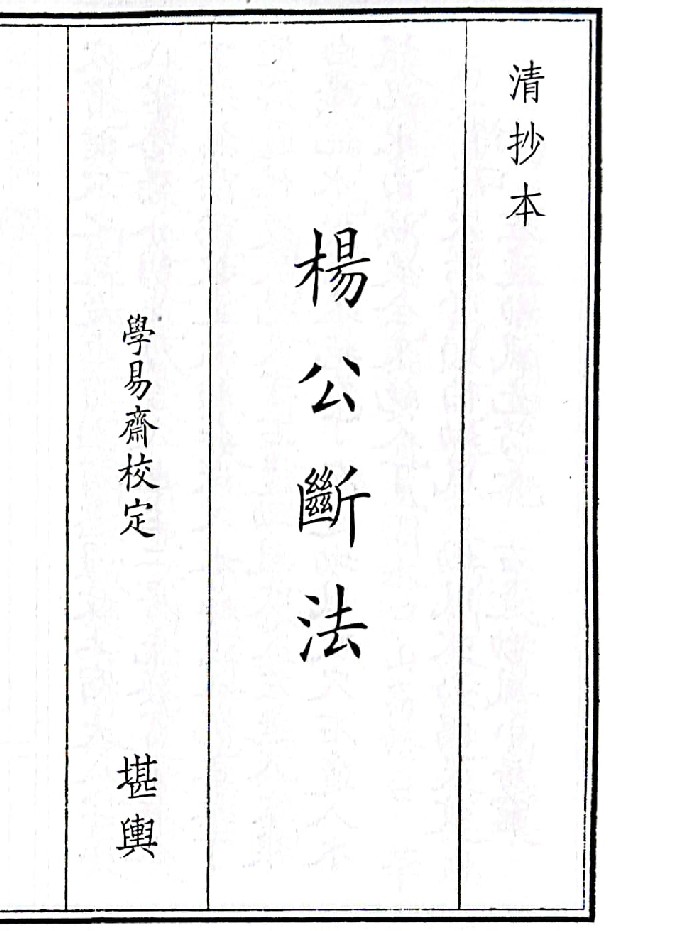 清抄本
楊公斷法
學易齋校定
堪輿